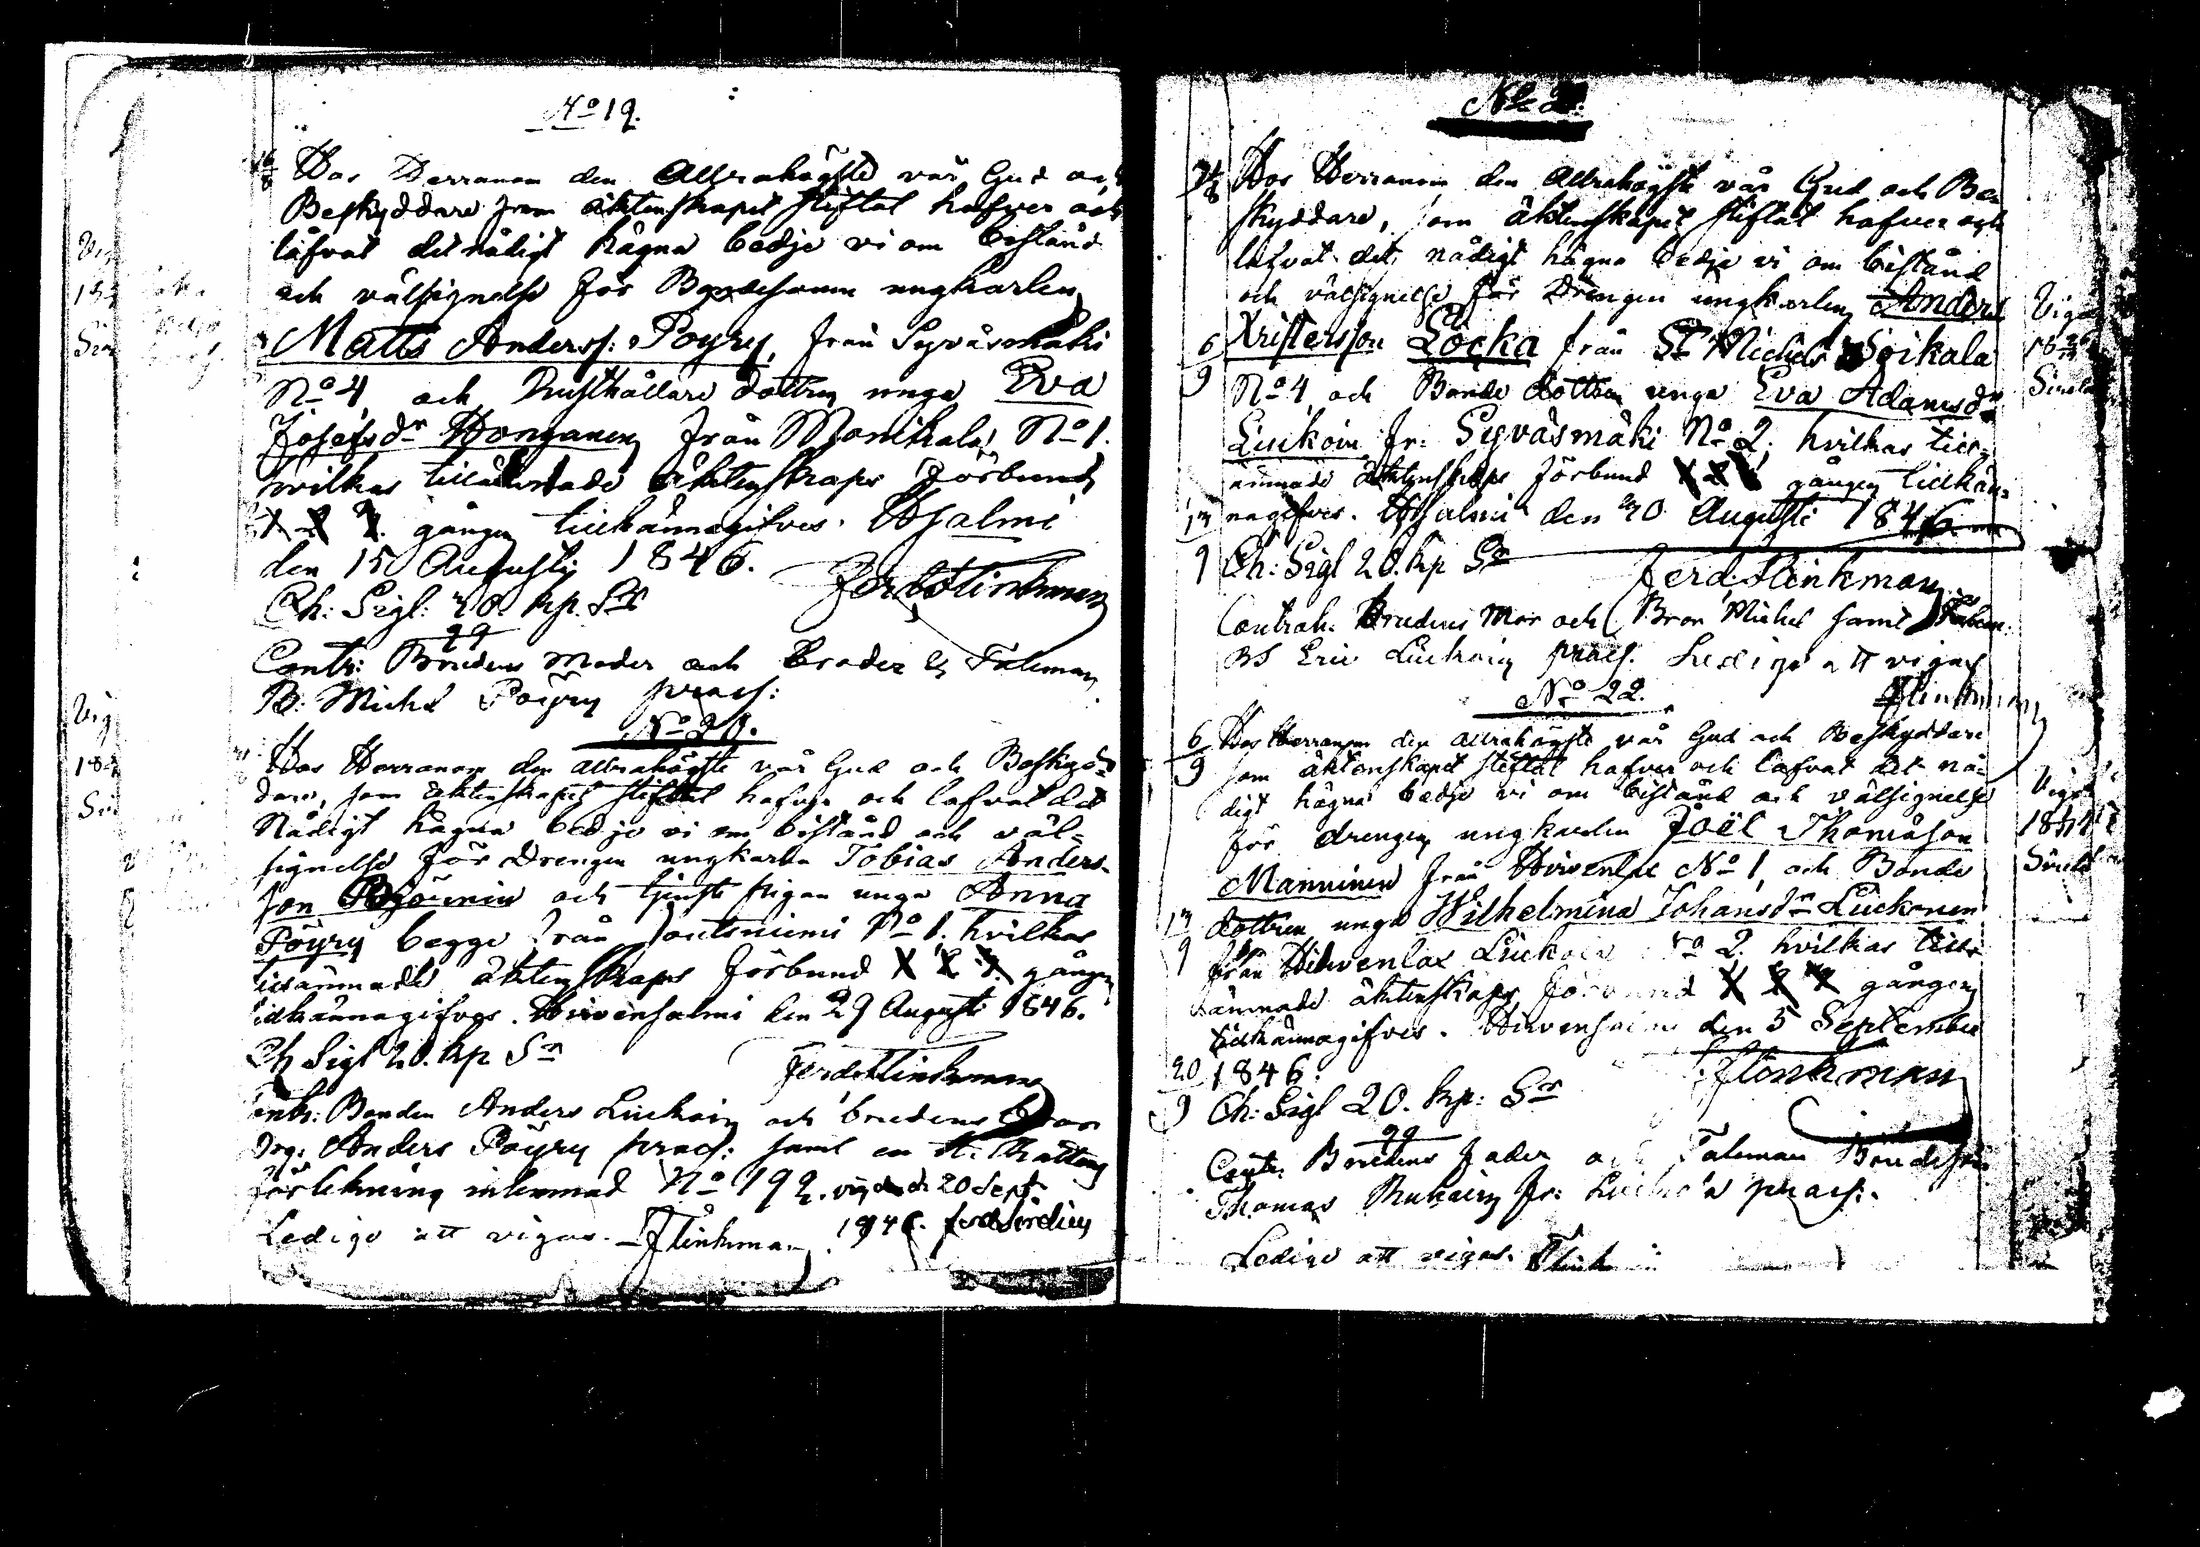 No 19.
16/8 Hos Herranom den Allrahögste vår Gud och
Beskyddare som äktenskapet stiftat hafver och
låfvat det nådigt hägna bedje vi om bistånd
och välsignelse för Bondesonen ungkarlen
Matts Anderss: Poyry, från Syväsmäki
No 4 och Rusthållare dottren unga Eva
Josefsdr Honganen från Monikala No 1.
hvilkas tillämnade äktenskaps förbund
1 2 3. gången tillkännagifves. Hsalmi
den 15 Augusti 1846.
Ch: Sigl: 20. kp. Sr Ferd Flinkman
Contr: Brudens Moder och broder Taleman
B: Michel Poÿry præs:
No 20.
Hos Herranom den allrahögste vår Gud och Beskyd-
dare, som äktenskapet stiftat hafver och lafvat det
Nådigt hägna bedje vi om bistånd och väl=
signelse för Drengen ungkarln Tobias Anders-
son och tjenste pigan unga Anna
Pöyry begge från No 1. hvilkas
tillämnade äktenskaps förbund 1 2 3 gången
tillkännagifves. Hirvensalmi den 29 Augusti 1846.
Ch Sigl 20. kp Sr Ferd Flinkman
Contr: Bonden Anders Liukoin och brudens bror
Drg: Anders Pöyry præs: samt en
No 192. vigde d 20 Sept.
Ledige att vigas. Flinkman 1846.
No 21.
Hos Herranom den Allrahögste vår Gud och Be-
skyddare, som äktenskapet stiftat hafver och
lafvat det nådigt hägna bedje vi om bistånd
och välsignelse för Drengen ungkarlen Anders
6/9 Kristersson Locka från St Michels Soikala
No 4 och Bonde dottren unga Eva Adamsdr
Liukoin fr: Syväsmäki No 2, hvilkas till-
ämnade äktenskaps förbund 1 2 3 gången tillkän-
13/9 nagifves. Hsalmi den 30 Augusti 1846
Ch: Sigl 20. kp Sr Ferd: Flinkman
Contrah: Brudens Mor och Bror Michel samt Talem:
BS Eric Liukoin præs. Ledige att vigas
Flinkman
No 22.
6/9 Hos Herranom den allrahögste vår Gud och Beskyddare
som äktenskapet stiftat hafver och lafvat det nå-
digt hägna bedje vi om bistånd och välsignelse
för drengen ungkarlen Joël Thomasson
Manninen från Hirvenlax No 1, och Bonde
13/9 dottren unga Wilhelmina Johansdr Liukonen
från Hirvenlax Liukola No 2. hvilkas till-
ämnade äktenskaps förbund 1 2 3 gången
tillkännagifves. Hirvensalmi den 5 September
20/9 1846.
Ch: Sigl 20. kp: Sr Flinkman
Contr. Brudens fader och Taleman
Thomas fr: præs:
Ledige att vigas. Flink